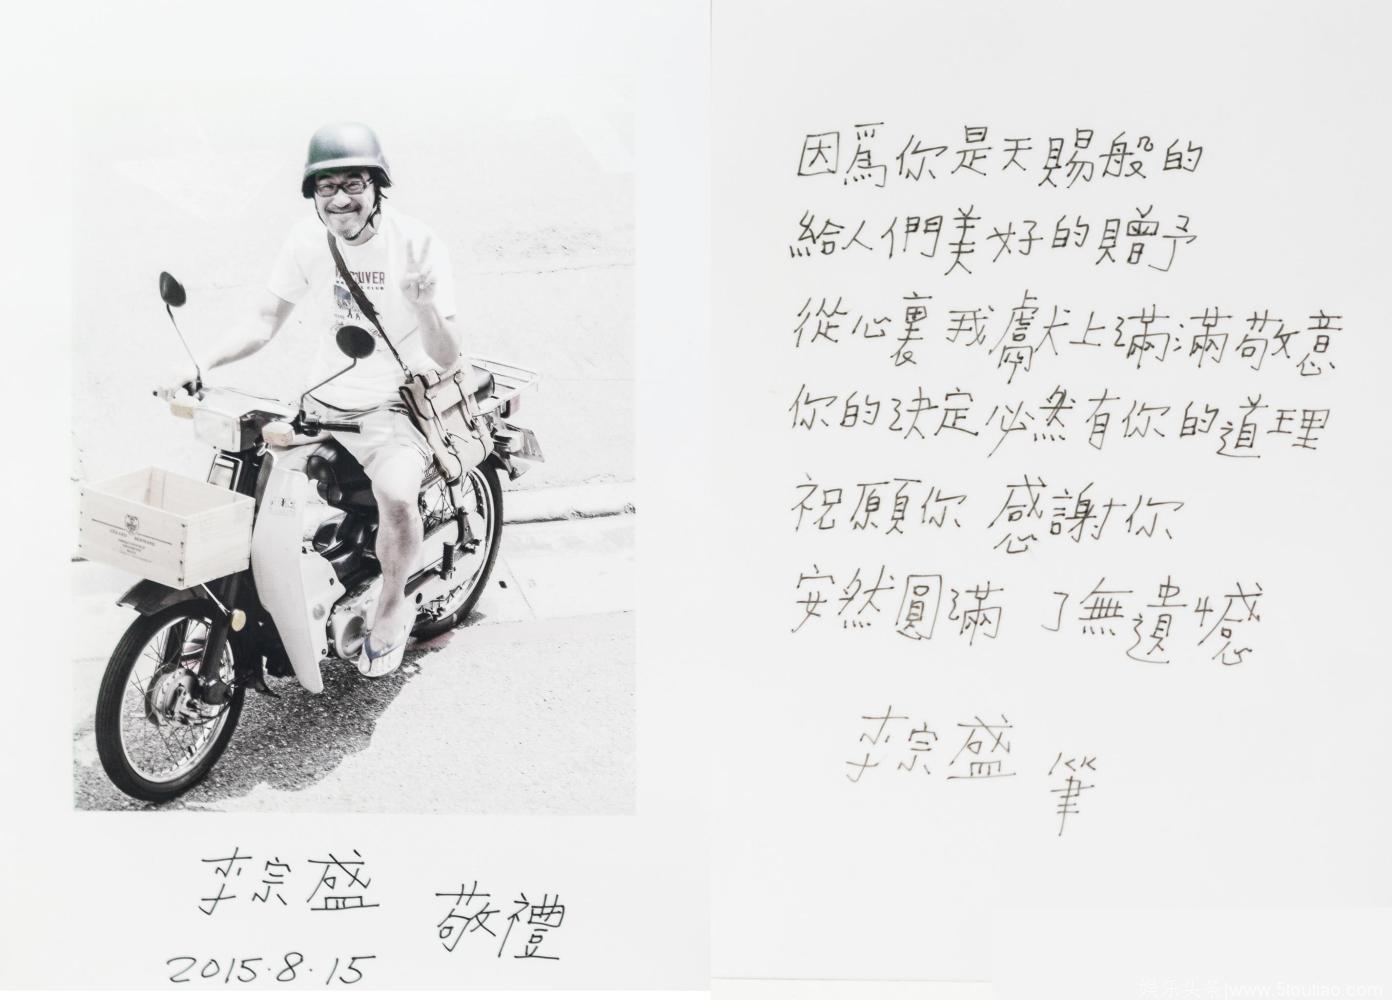 VANCOUVER
李宗盛
敬禮
2015.8.15
因爲你是天賜般的
給人們美好的贈予
從心裏 我獻上滿滿敬意
你的決定必然有你的道理
祝願你 感謝你
安然圓滿 了無遺憾
李宗盛 筆
娱乐头条|www.5touliao.com